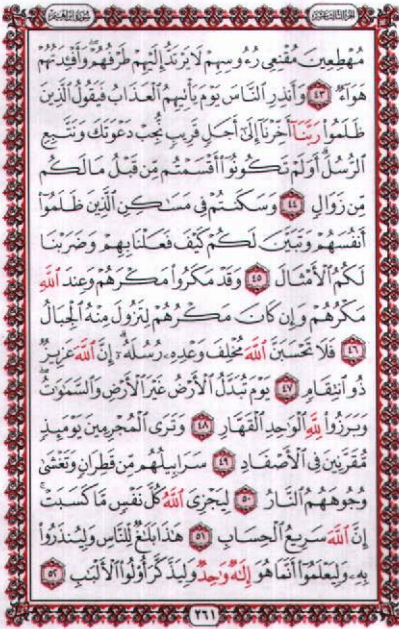 مُهْطِعِينَ مُقْنِعِى رُءُوسِهِمْ لَا يَرْتَدُّ إِلَيْهِمْ طَرْفُهُمْ ۖ وَأَفْـِٔدَتُهُمْ
هَوَآءٌ ٤٣ وَأَنذِرِ ٱلنَّاسَ يَوْمَ يَأْتِيهِمُ ٱلْعَذَابُ فَيَقُولُ ٱلَّذِينَ
ظَلَمُوا۟ رَبَّنَآ أَخِّرْنَآ إِلَىٰٓ أَجَلٍ قَرِيبٍ نُّجِبْ دَعْوَتَكَ وَنَتَّبِعِ
ٱلرُّسُلَ ۗ أَوَلَمْ تَكُونُوٓا۟ أَقْسَمْتُم مِّن قَبْلُ مَا لَكُم
مِّن زَوَالٍ ٤٤ وَسَكَنتُمْ فِى مَسَـٰكِنِ ٱلَّذِينَ ظَلَمُوٓا۟
أَنفُسَهُمْ وَتَبَيَّنَ لَكُمْ كَيْفَ فَعَلْنَا بِهِمْ وَضَرَبْنَا
لَكُمُ ٱلْأَمْثَالَ ٤٥ وَقَدْ مَكَرُوا۟ مَكْرَهُمْ وَعِندَ ٱللَّهِ
مَكْرُهُمْ وَإِن كَانَ مَكْرُهُمْ لِتَزُولَ مِنْهُ ٱلْجِبَالُ
٤٦ فَلَا تَحْسَبَنَّ ٱللَّهَ مُخْلِفَ وَعْدِهِۦ رُسُلَهُۥٓ ۗ إِنَّ ٱللَّهَ عَزِيزٌ
ذُو ٱنتِقَامٍ ٤٧ يَوْمَ تُبَدَّلُ ٱلْأَرْضُ غَيْرَ ٱلْأَرْضِ وَٱلسَّمَـٰوَٰتُ ۖ
وَبَرَزُوا۟ لِلَّهِ ٱلْوَٰحِدِ ٱلْقَهَّارِ ٤٨ وَتَرَى ٱلْمُجْرِمِينَ يَوْمَئِذٍ
مُّقَرَّنِينَ فِى ٱلْأَصْفَادِ ٤٩ سَرَابِيلُهُم مِّن قَطِرَانٍ وَتَغْشَىٰ
وُجُوهَهُمُ ٱلنَّارُ ٥٠ لِيَجْزِىَ ٱللَّهُ كُلَّ نَفْسٍ مَّا كَسَبَتْ ۚ
إِنَّ ٱللَّهَ سَرِيعُ ٱلْحِسَابِ ٥١ هَـٰذَا بَلَـٰغٌ لِّلنَّاسِ وَلِيُنذَرُوا۟
بِهِۦ وَلِيَعْلَمُوٓا۟ أَنَّمَا هُوَ إِلَـٰهٌ وَٰحِدٌ وَلِيَذَّكَّرَ أُو۟لُوا۟ ٱلْأَلْبَـٰبِ ٥٢
٢٦١